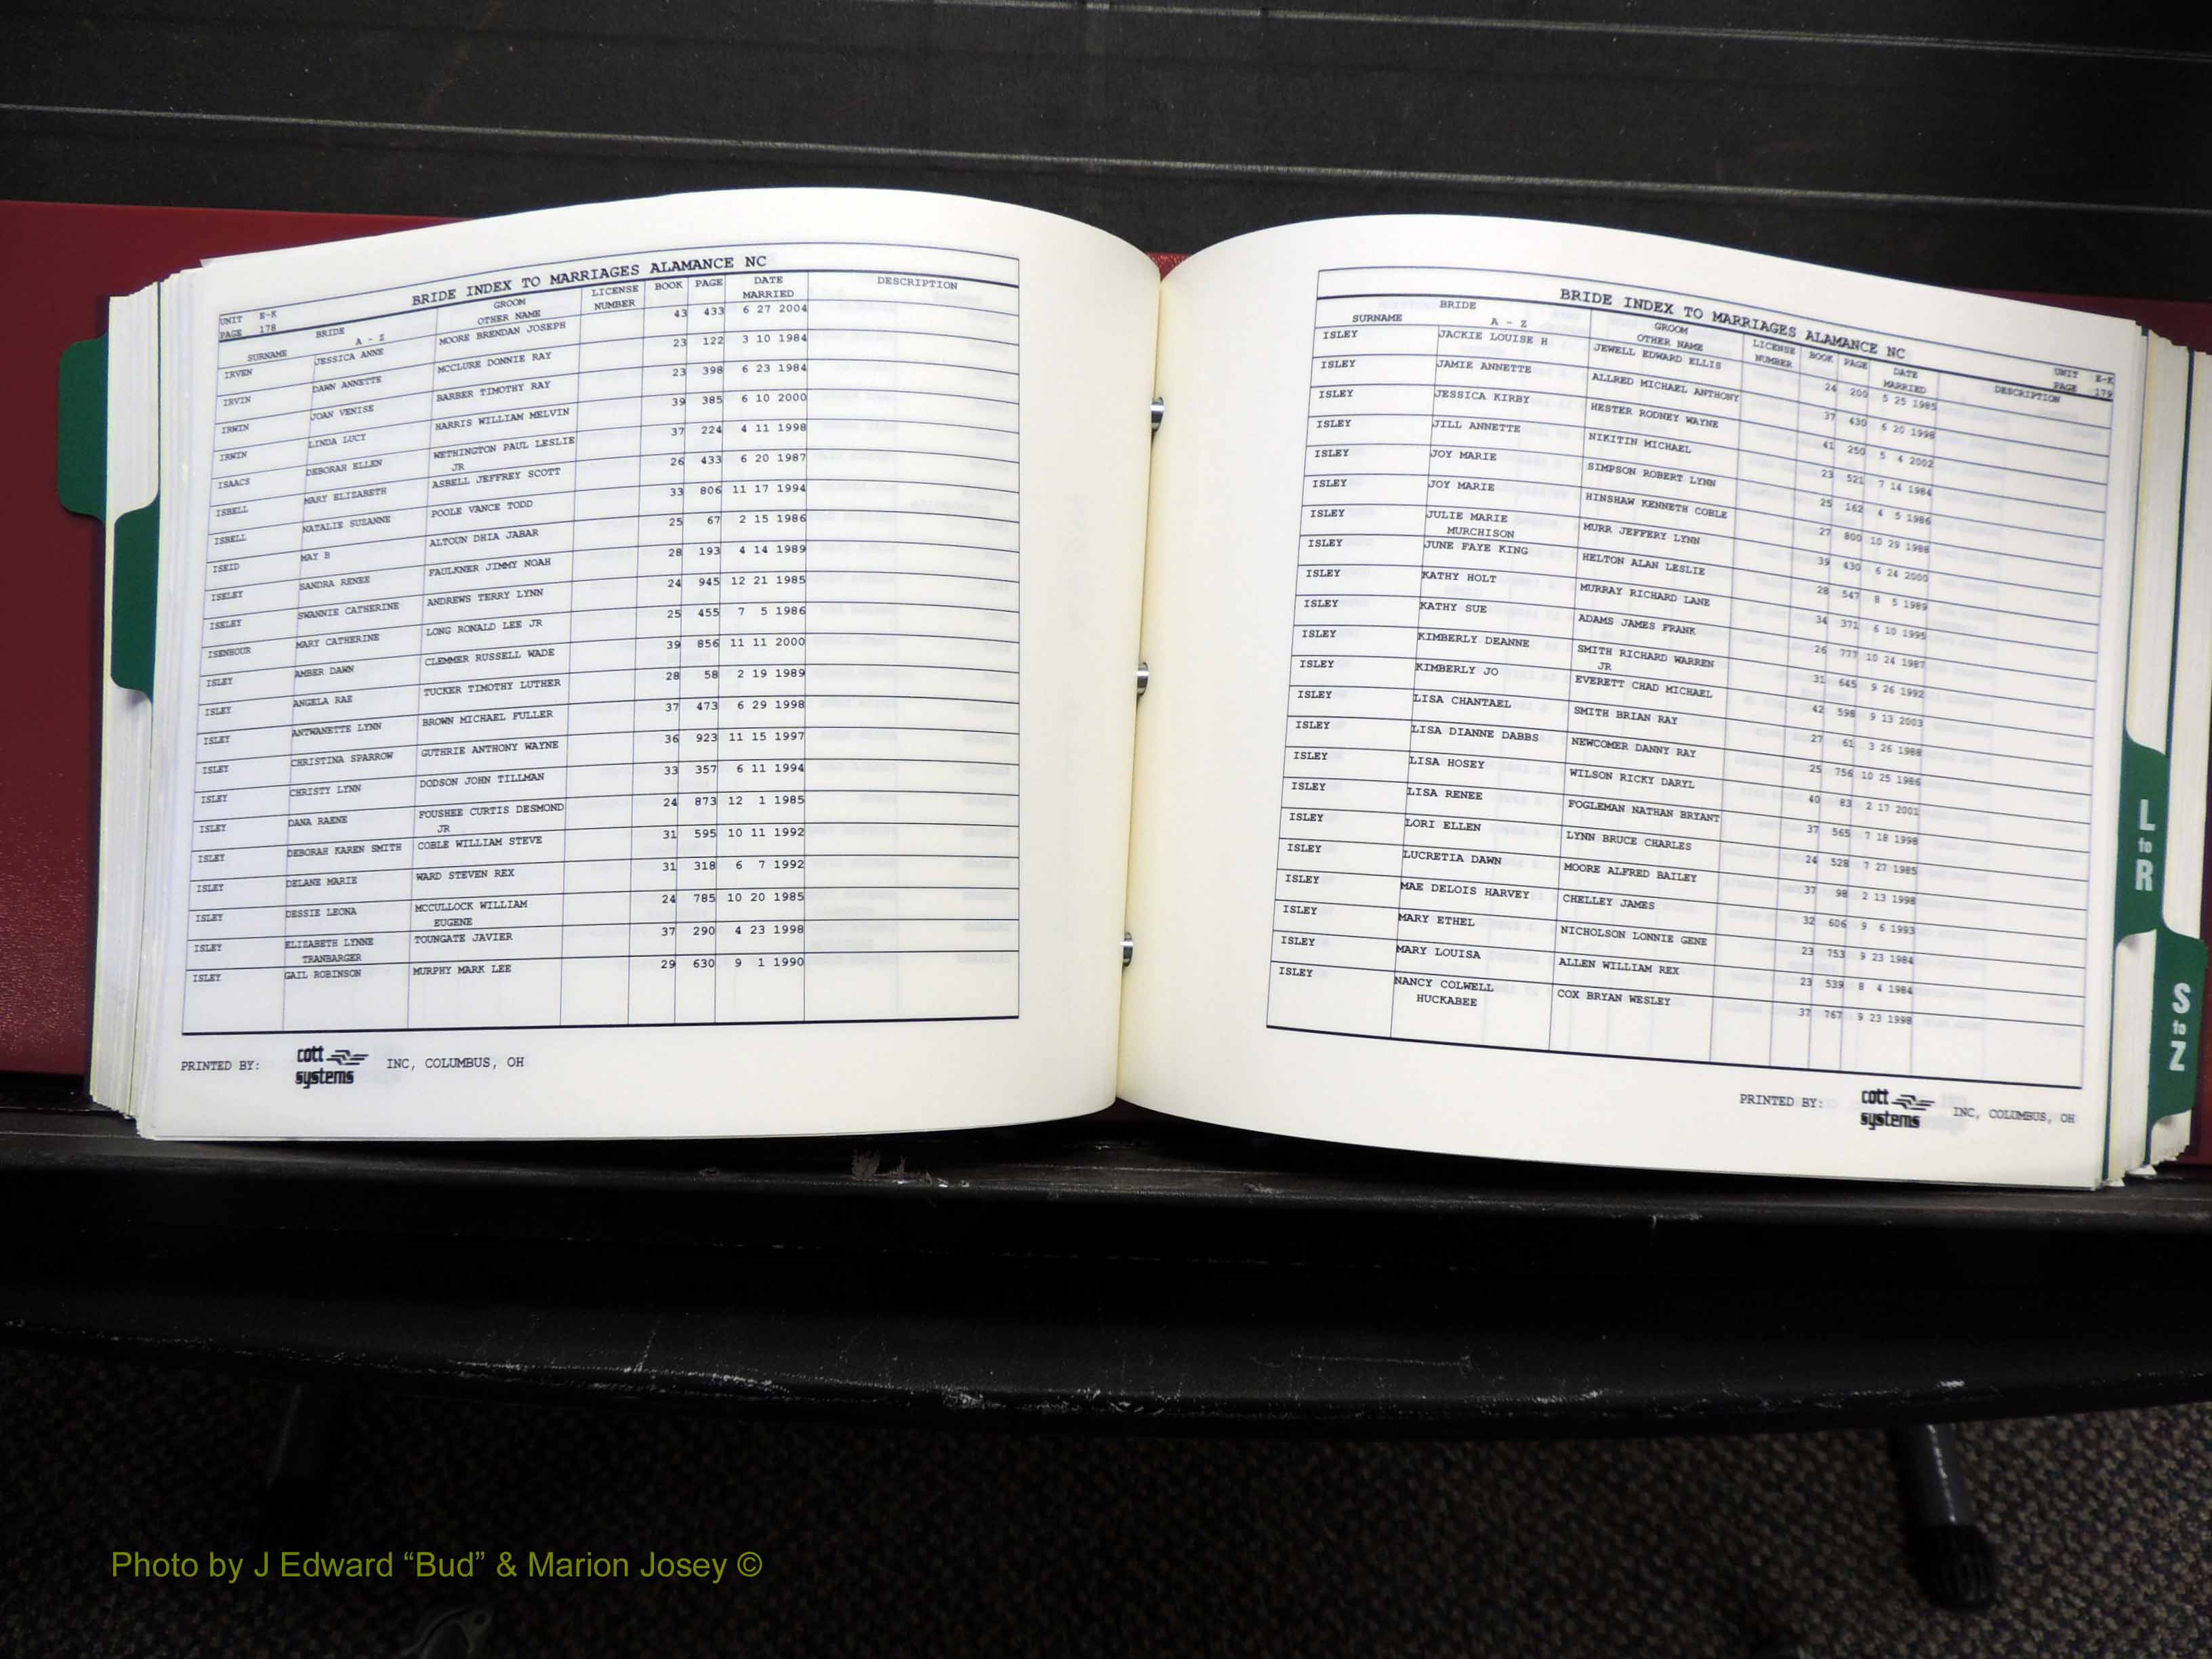 BRIDE INDEX TO MARRIAGES ALAMANCE NC
UNIT E-K
PAGE 178
BRIDE GROOM LICENSE BOOK PAGE DATE DESCRIPTION
SURNAME A - Z OTHER NAME NUMBER MARRIED
IRVEN JESSICA ANNE MOORE BRENDAN JOSEPH 43 433 6 27 2004
IRVIN DAWN ANNETTE MCCLURE DONNIE RAY 23 122 3 10 1984
IRWIN JOAN VENISE BARBER TIMOTHY RAY 23 398 6 23 1984
IRWIN LINDA LUCY HARRIS WILLIAM MELVIN 39 385 6 10 2000
ISAACS DEBORAH ELLEN WETHINGTON PAUL LESLIE 37 224 4 11 1998
JR
ISBELL MARY ELIZABETH ASBELL JEFFREY SCOTT 26 433 6 20 1987
ISBELL NATALIE SUZANNE POOLE VANCE TODD 33 806 11 17 1994
ISEID MAY B ALTOUN DHIA JABAR 25 67 2 15 1986
ISELEY SANDRA RENEE FAULKNER JIMMY NOAH 28 193 4 14 1989
ISELEY SWANNIE CATHERINE ANDREWS TERRY LYNN 24 945 12 21 1985
ISENHOUR MARY CATHERINE LONG RONALD LEE JR 25 455 7 5 1986
ISLEY AMBER DAWN CLEMMER RUSSELL WADE 39 856 11 11 2000
ISLEY ANGELA RAE TUCKER TIMOTHY LUTHER 28 58 2 19 1989
ISLEY ANTWANETTE LYNN BROWN MICHAEL FULLER 37 473 6 29 1998
ISLEY CHRISTINA SPARROW GUTHRIE ANTHONY WAYNE 36 923 11 15 1997
ISLEY CHRISTY LYNN DODSON JOHN TILLMAN 33 357 6 11 1994
ISLEY DANA RAENE FOUSHEE CURTIS DESMOND 24 873 12 1 1985
JR
ISLEY DEBORAH KAREN SMITH COBLE WILLIAM STEVE 31 595 10 11 1992
ISLEY DELANE MARIE WARD STEVEN REX 31 318 6 7 1992
ISLEY DESSIE LEONA MCCULLOCK WILLIAM 24 785 10 20 1985
EUGENE
ISLEY ELIZABETH LYNNE TOUNGATE JAVIER 37 290 4 23 1998
TRANBARGER
ISLEY GAIL ROBINSON MURPHY MARK LEE 29 630 9 1 1990
PRINTED BY: cott systems INC, COLUMBUS, OH
BRIDE INDEX TO MARRIAGES ALAMANCE NC
UNIT E-K
PAGE 179
BRIDE GROOM LICENSE BOOK PAGE DATE DESCRIPTION
SURNAME A - Z OTHER NAME NUMBER MARRIED
ISLEY JACKIE LOUISE H JEWELL EDWARD ELLIS 24 200 5 25 1985
ISLEY JAMIE ANNETTE ALLRED MICHAEL ANTHONY 37 430 6 20 1998
ISLEY JESSICA KIRBY HESTER RODNEY WAYNE 41 250 5 4 2002
ISLEY JILL ANNETTE NIKITIN MICHAEL 23 521 7 14 1984
ISLEY JOY MARIE SIMPSON ROBERT LYNN 25 162 4 5 1986
ISLEY JOY MARIE HINSHAW KENNETH COBLE 27 800 10 29 1988
ISLEY JULIE MARIE MURR JEFFERY LYNN 39 430 6 24 2000
MURCHISON
ISLEY JUNE FAYE KING HELTON ALAN LESLIE 28 547 8 5 1989
ISLEY KATHY HOLT MURRAY RICHARD LANE 34 371 6 10 1995
ISLEY KATHY SUE ADAMS JAMES FRANK 26 777 10 24 1987
ISLEY KIMBERLY DEANNE SMITH RICHARD WARREN 31 645 9 26 1992
JR
ISLEY KIMBERLY JO EVERETT CHAD MICHAEL 42 598 9 13 2003
ISLEY LISA CHANTAEL SMITH BRIAN RAY 27 61 3 26 1988
ISLEY LISA DIANNE DABBS NEWCOMER DANNY RAY 25 756 10 25 1986
ISLEY LISA HOSEY WILSON RICKY DARYL 40 83 2 17 2001
ISLEY LISA RENEE FOGLEMAN NATHAN BRYANT 37 565 7 18 1998
ISLEY LORI ELLEN LYNN BRUCE CHARLES 24 528 7 27 1985
ISLEY LUCRETIA DAWN MOORE ALFRED BAILEY 37 98 2 13 1998
ISLEY MAE DELOIS HARVEY CHELLEY JAMES 32 606 9 6 1993
ISLEY MARY ETHEL NICHOLSON LONNIE GENE 23 753 9 23 1984
ISLEY MARY LOUISA ALLEN WILLIAM REX 23 539 8 4 1984
ISLEY NANCY COLWELL COX BRYAN WESLEY 37 767 9 23 1998
HUCKABEE
PRINTED BY: cott systems INC, COLUMBUS, OH
L to R
S to Z
Photo by J Edward “Bud” & Marion Josey ©